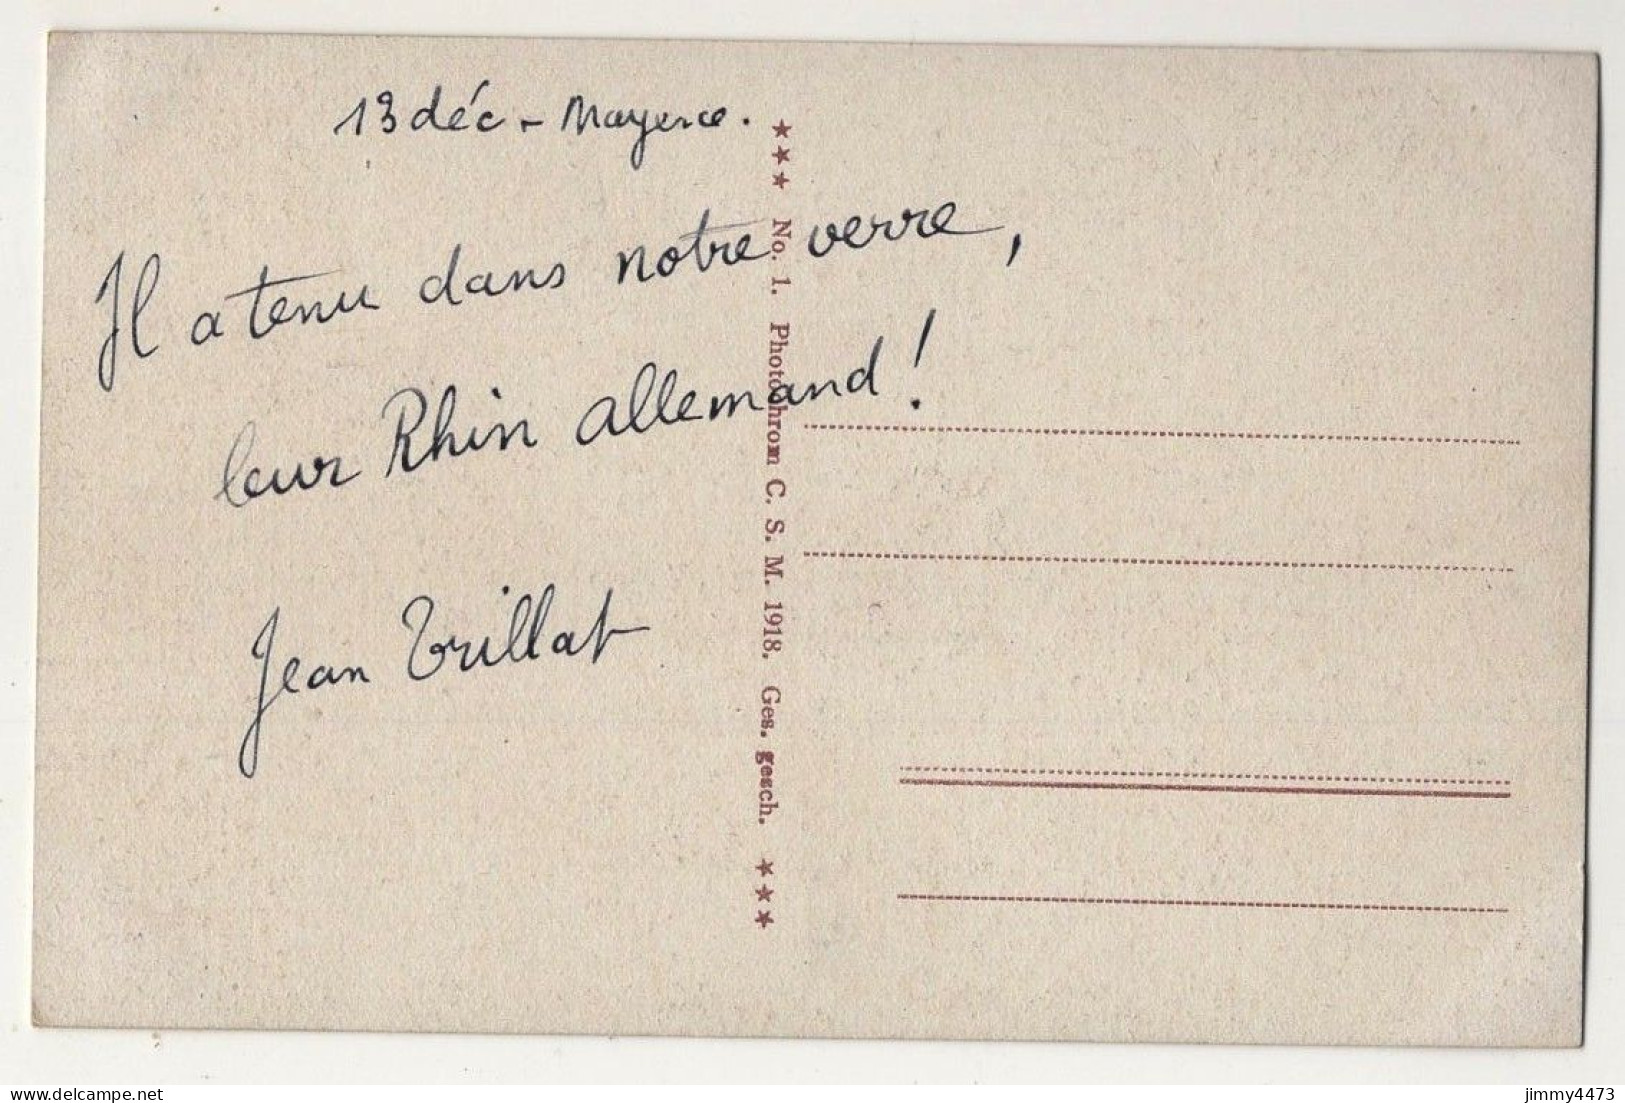 13 déc - Mayence.
Il a tenu dans notre verre,
leur Rhin allemand !
Jean Trillat
★★★ No. 1. Photochrom C. S. M. 1918. Ges. gesch. ★★★
jimmy4473